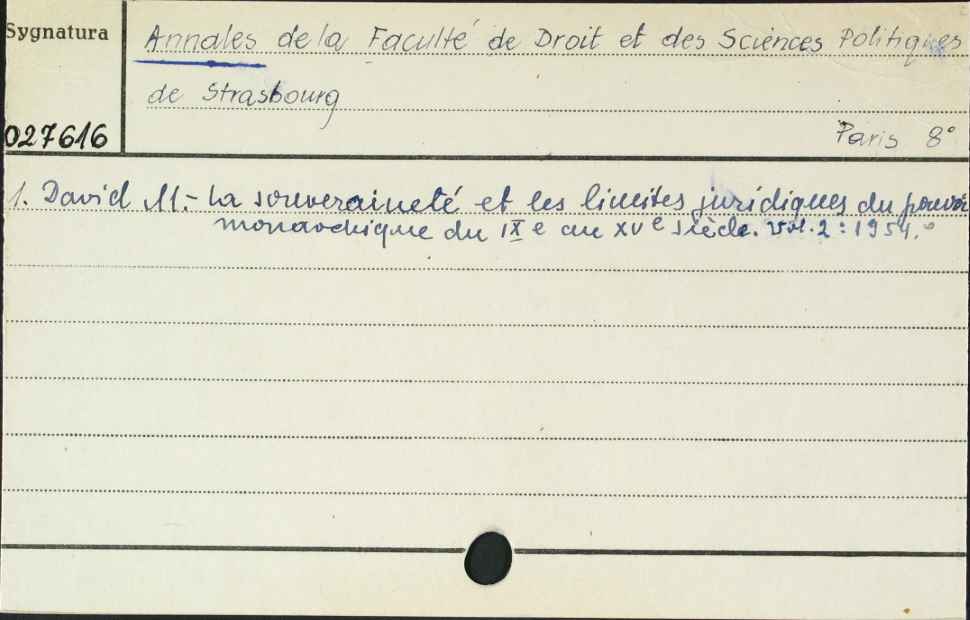 Sygnatura
Annales de la Faculté de Droit et des Sciences Politiques
de Strasbourg
027616
Paris 8°
1. David M.- La souveraineté et les limites juridiques du pouvoir
monarchique du IXe au XVe siècle. Vol. 2 : 1954.